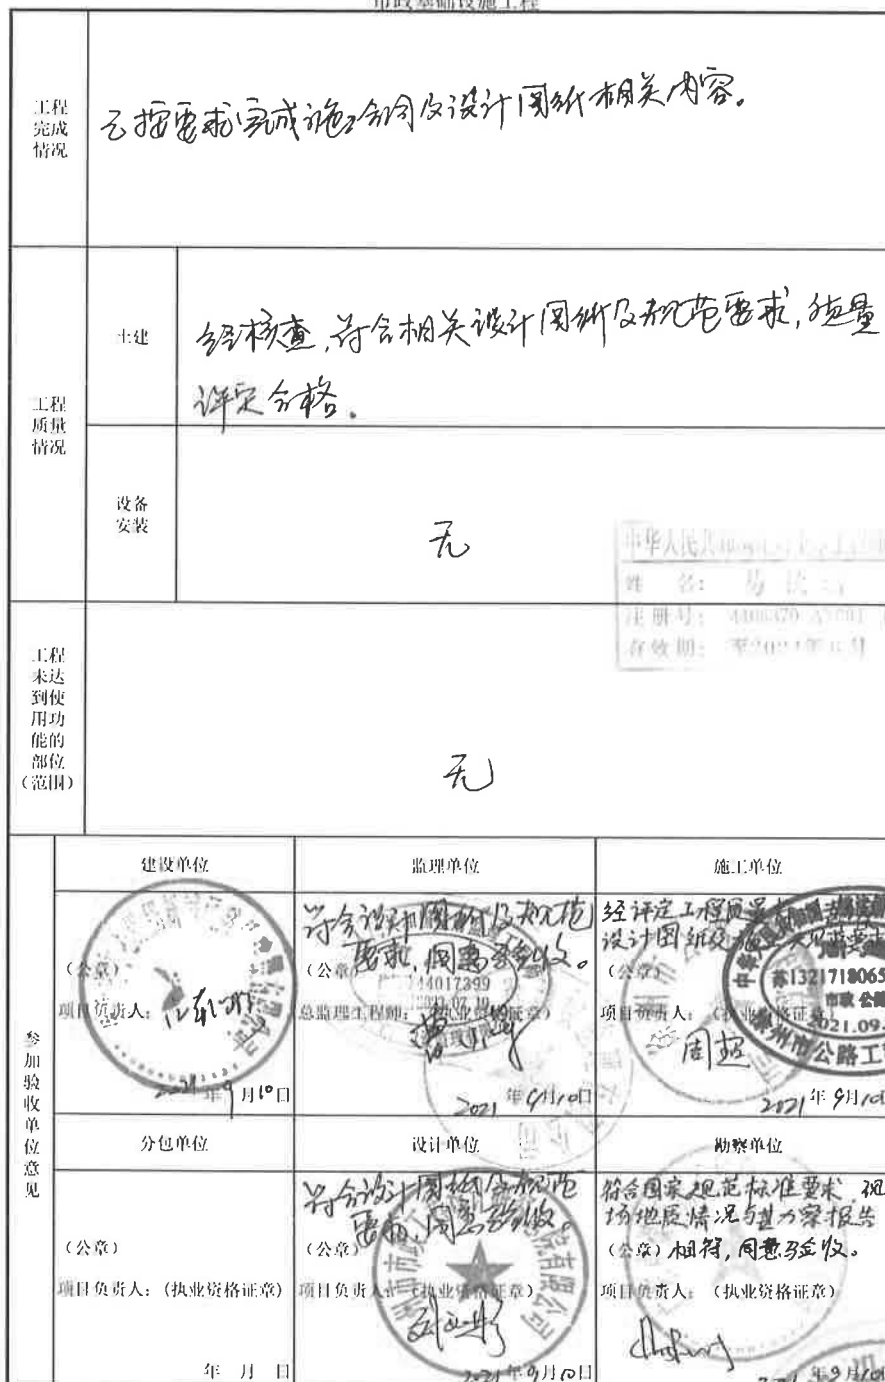 市政基础设施工程
工程
完成
情况
已按要求完成施工合同及设计图纸相关内容。
工程
质量
情况
土建
经核查,符合相关设计图纸及规范要求,质量
评定合格。
设备
安装
无
中华人民共
姓 名: 易
注册号: 4406470
有效期:
工程
未达
到使
用功
能的
部位
(范围)
无
参加验收单位意见
建设单位
(公章)
项目负责人:
2021年9月10日
监理单位
符合设计图纸及规范
要求,同意验收。
(公章)
44017399
总监理工程师: (执业资格证章)
2021年9月10日
施工单位
经评定工程质量
设计图纸及施工
(公章)
苏1321718065
市政 公路
2021.09.
州市公路工
项目负责人: (执业资格证章)
周超
2021年9月10日
分包单位
(公章)
项目负责人: (执业资格证章)
年 月 日
设计单位
符合设计图纸及规范
要求,同意验收。
(公章)
州市市政
院有限公司
项目负责人: (执业资格证章)
2021年9月10日
勘察单位
符合国家规范标准要求,现
场地质情况与勘察报告
(公章) 相符,同意验收。
项目负责人: (执业资格证章)
年9月10日